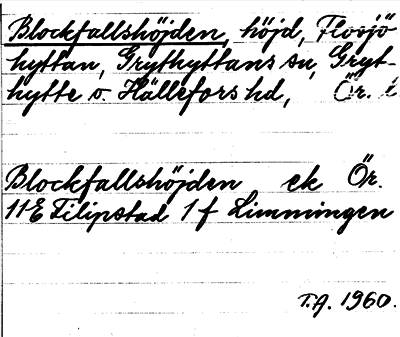 Blockfallshöjden, höjd, Flosjö
hyttan, Grythyttans sn, Gryt-
hytte o. Hällefors hd, Ör. l
Blockfallshöjden ek Ör.
11E Filipstad 1 f Limmingen
T.A. 1960.